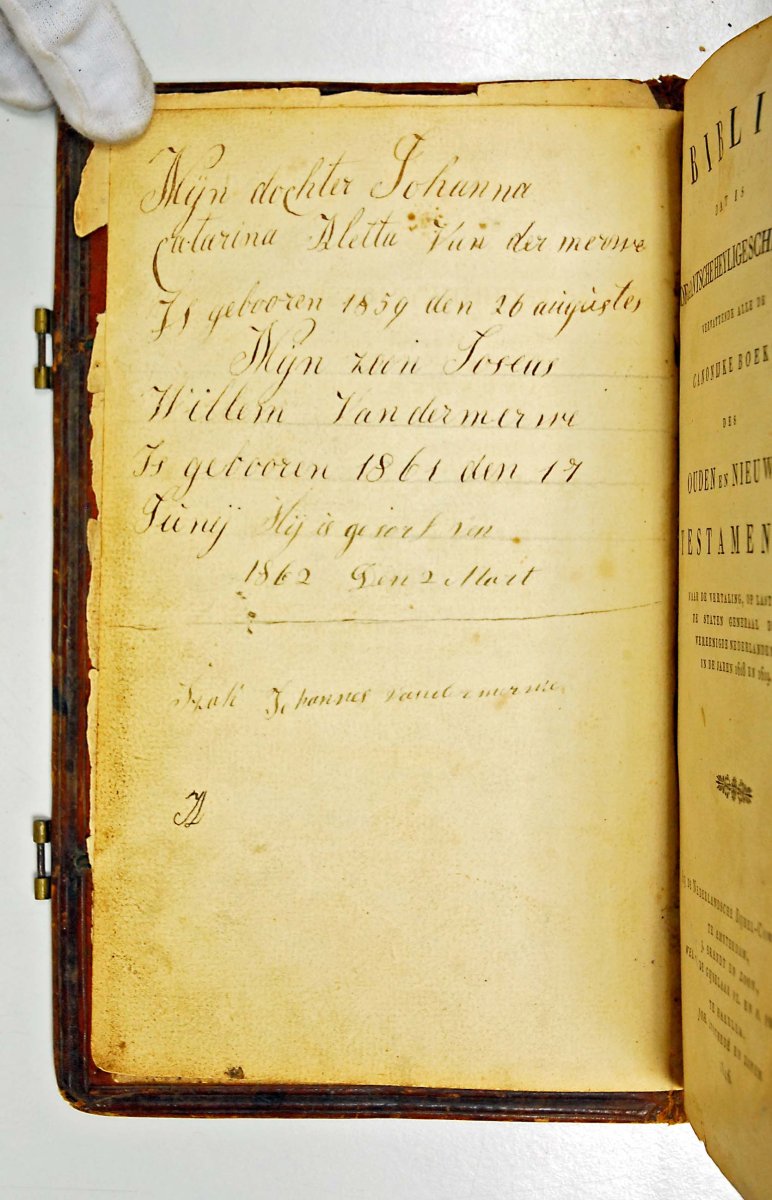 Mÿn dochter Johanna
Catarina Aletta Van der merwe
Is gebooren 1859 den 26 augustes
Mÿn zoon Joseus
Willem Vandermerwe
Is gebooren 1861 den 17
Junÿ Hÿ is gestorf ven
1862 Den 2 Mart
Izak Johannes vandermerwe
A
BIBLI
DAT IS
HEYLIGE SCH
VERVATTENDE ALLE DE
CANONIJKE BOEK
DES
OUDEN EN NIEUW
TESTAMEN
NAAR DE VERTALING, OP LAST
DE STATEN GENERAAL D
VEREENIGDE NEDERLANDEN
IN DE JAREN 1618 EN 1619
DE NEDERLANDSCHE BIJBEL-COM
TE AMSTERDAM,
J. BRANDT EN ZOON,
TE HAARLEM,
JOH. ENSCHEDÉ EN ZONEN